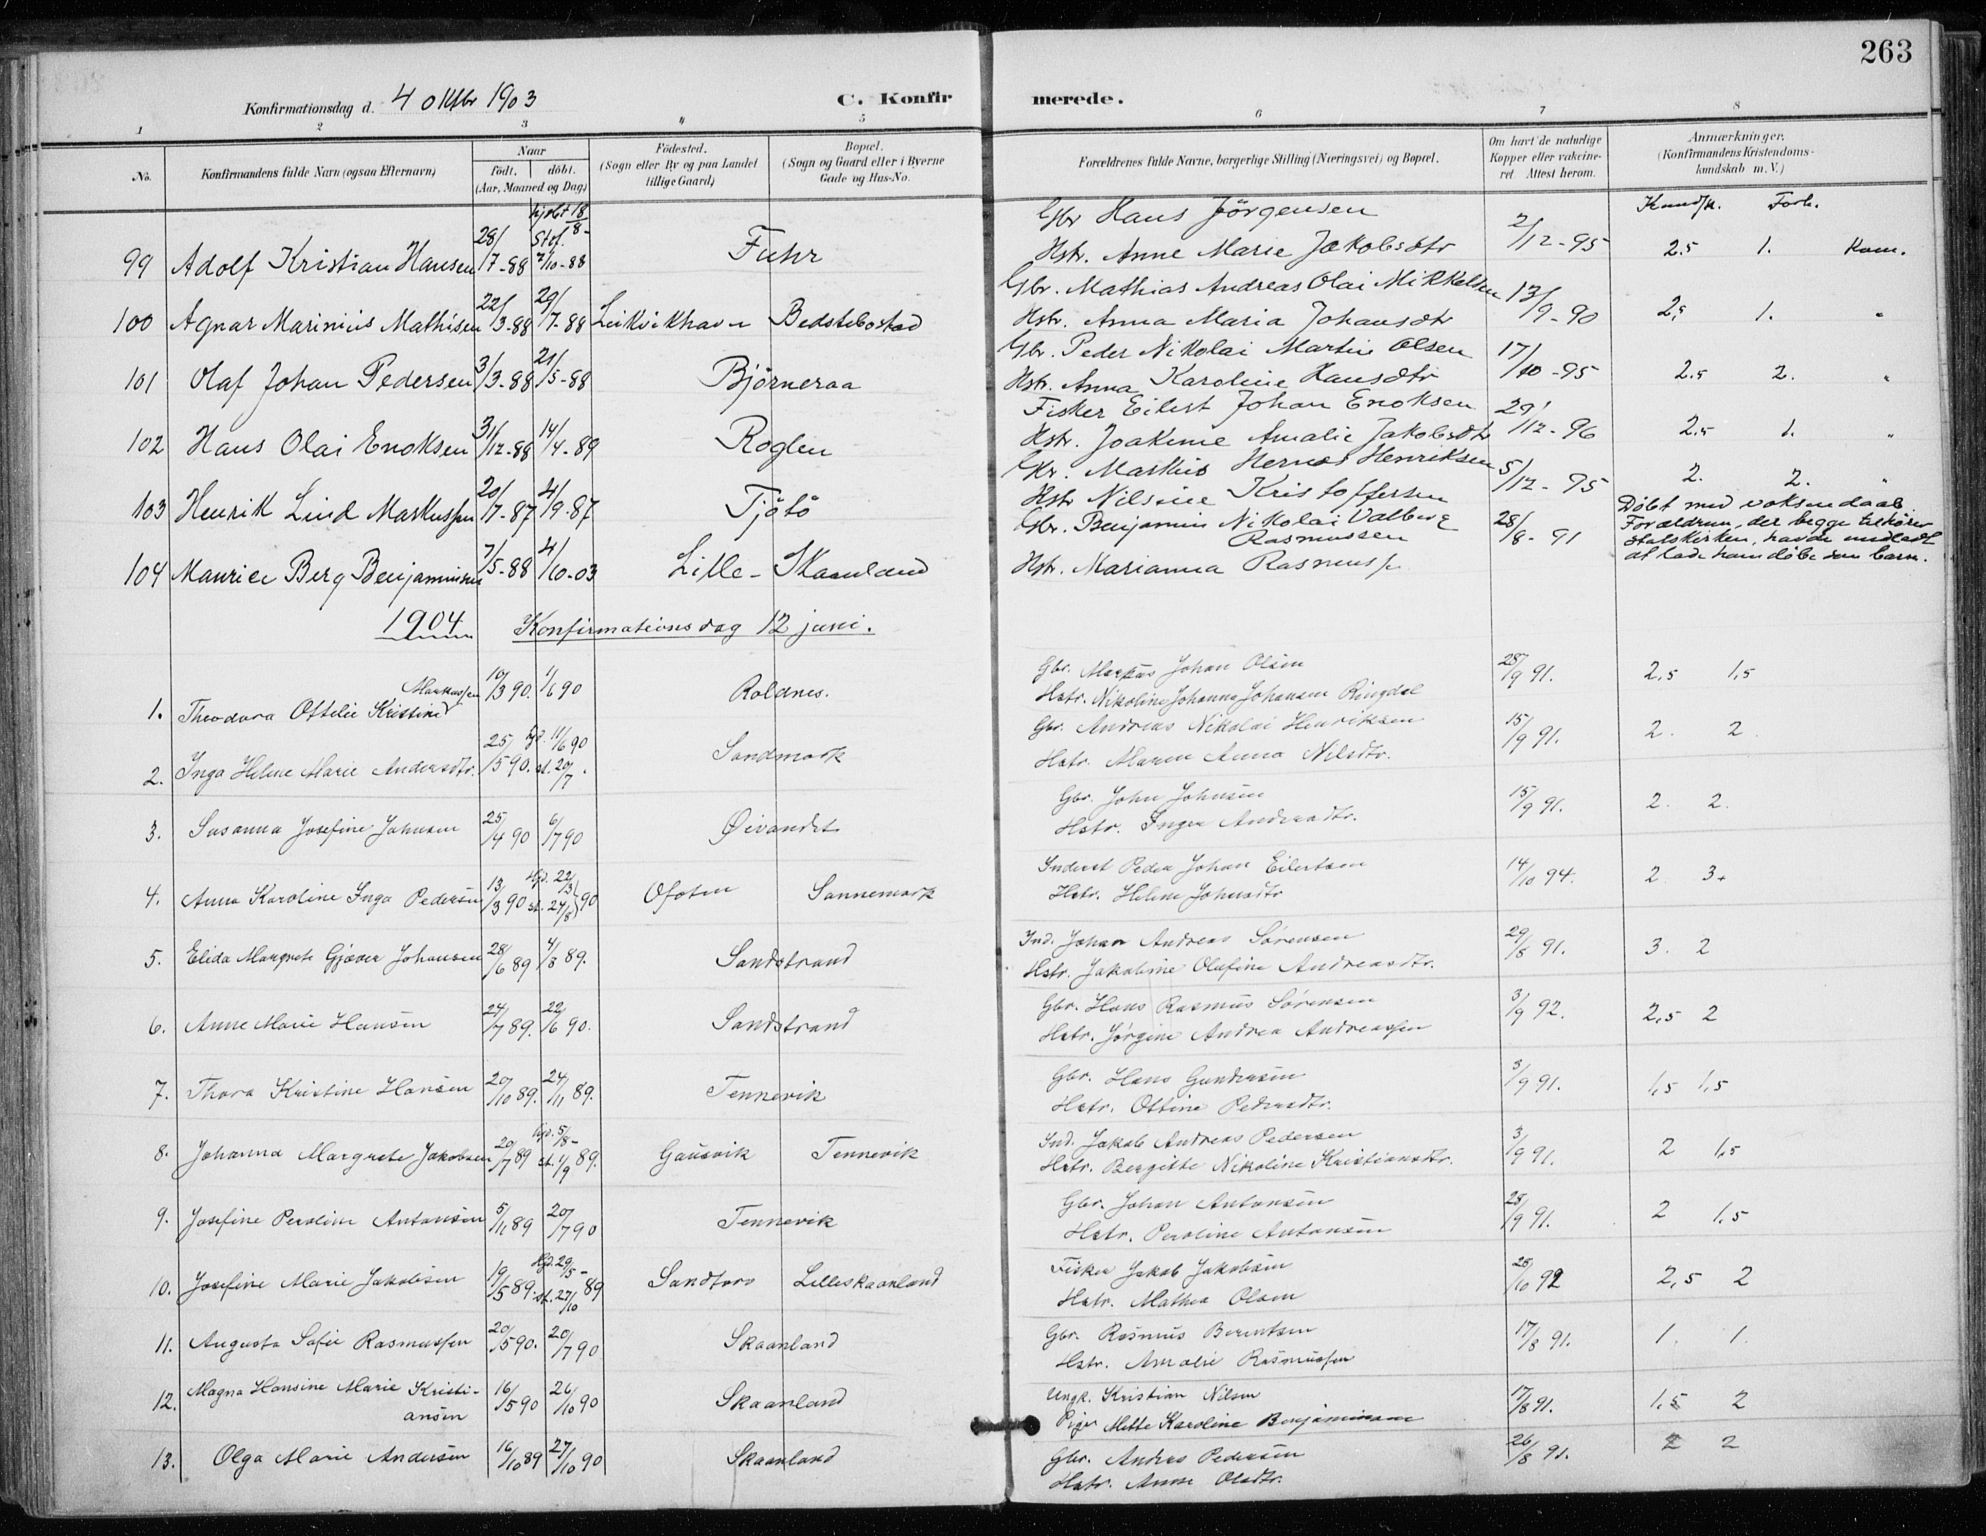 263
Konfirmationsdag d. 4 oktbr 1903
C. Konfirmerede.
1 2 3 4 5 6 7 8
No.
Konfirmandens fulde Navn (ogsaa Efternavn)
Naar
født. døbt.
(Aar, Maaned og Dag)
Fødested.
(Sogn eller By og paa Landet tillige Gaard)
Bopæl.
(Sogn og Gaard eller i Byerne Gade og Hus-No.
Forældrenes fulde Navne, borgerlige Stilling (Næringsvei) og Bopæl.
Om havt de naturlige Kopper eller vaccineret Attest herom.
Anmærkninger.
(Konfirmandens Kristendomskundskab m. V.)
Kundsk. Forh.
99 Adolf Kristian Hansen 28/7-88 hjdbt 18/8- Stf. 7/10-88 Fuhr Gbr Hans Jørgensen
Hstr. Anne Marie Jakobsdtr 2/12-95 2.5 1. Kom.
100 Agnar Marinius Mathisen 22/3-88 29/7-88 Leikvikhavn Bedstebostad Gbr. Mathias Andreas Olai Mikkelsen
Hstr. Anna Maria Johansdtr 13/9-90 2,5 1. "
101 Olaf Johan Pedersen 3/3-88 21/5-88 Bjørneraa Gbr. Peder Nikolai Martin Olsen
Hstr. Anna Karoline Hansdtr 17/10-95 2.5 2. "
102 Hans Olai Enoksen 31/12-88 14/4-89 Roglen Fisker Eilert Johan Enoksen
Hstr. Joakime Amalie Jakobsdtr 29/12-96 2.5 1. "
103 Henrik Lind Markussen 20/7-87 4/9-87 Tjøtø Markus Hernes Henriksen
Hstr Nilsine Kristoffersen 5/12-95 2. 2. "
104 Maurice Berg Benjaminsen 7/5-88 4/10-03 Lille-Skaanland Gbr. Benjamin Nikolai Valberg
Rasmussen
Hstr. Marianna Rasmuss. 28/8-91 Døbt med voksendaab
Forældrene, der begge tilhører
statskirken, havde undladt
at lade ham døbe som barn.
1904 Konfirmationsdag 12 juni.
1. Theodora Ottelie Kristine Markussen 10/3 90. 1/6 90 Roldnes. Gbr. Markus Johan Olsen
Hstr. Nikoline Johanna Johansen Ringdal 28/9 91. 2,5 1,5
2. Inga Helene Marie Andersdtr. 25/5 90. hjd. 11/6 90 st. 20/7. Sandmark Gbr. Andreas Nikolai Henriksen
Hstr. Maren Anna Nilsdtr. 15/9 91. 2. 2.
3. Susanna Josefine Johnsen 25/4 90 6/7 90 Øivandet Gbr. John Johnsen
Hstr. Inger Andersdtr. 15/9 91. 2. 2.
4. Anna Karoline Inga Pedersen 13/3 90 hjd. 22/3 st. 24/8 90 Ofoten Sannemark Inderst Peder Johan Eilertsen
Hstr. Helene Johnsdtr 14/10 94. 2. 3+
5. Elida Margrete Gjæver Johansen 28/6 89 4/8 89. Sandstrand Ind. Johan Andreas Sørensen
Hstr. Jakobine Olufine Andreasdtr. 29/8 91. 3. 2
6. Anne Marie Hansen 24/7 89. 22/6 90. Sandstrand Gbr. Hans Rasmus Sørensen
Hstr. Jørgine Andrea Andreassen 3/9 92. 2,5 2
7. Thora Kristine Hansen 20/10 89. 24/11 89. Tennevik Gbr. Hans Gundersen
Hstr. Ottine Pedersdtr. 3/9 91. 1,5 1,5
8. Johanna Margrete Jakobsen 20/7 89 hjd. 5/8- st. 1/9 89. Gausvik Tennevik Ind. Jakob Andreas Pedersen
Hstr. Bergitte Nikoline Kristiansdtr. 3/9 91. 2 1,5
9. Josefine Peroline Antonsen 5/11 89 20/7 90 Tennevik Gbr. Johan Antonsen
Hstr. Peroline Antonsen 28/9 91. 2 1.5
10. Josefine Marie Jakobsen 19/5 89. hjd. 29/5- st. 27/10 89 Sandtorv Lilleskaanland Fisker Jakob Jakobsen
Hstr. Mathea Olsen 28/10 92 2,5 2
11. Augusta Sofie Rasmussen 20/5 90. 20/7 90 Skaanland Gbr. Rasmus Berentsen
Hstr. Amalie Rasmussen 17/8 91. 1. 1.
12. Magna Hansine Marie Kristiansen 16/5 90 26/10 90 Skaanland Ungk. Kristian Nilsen
Pige Mette Karoline Benjaminsen 17/8 91. 1.5 2
13. Olga Marie Andersen 16/10 89 27/10 90 Skaanland Gbr. Andreas Pedersen
Hstr. Anne Olsdtr. 26/8 91. 2 2